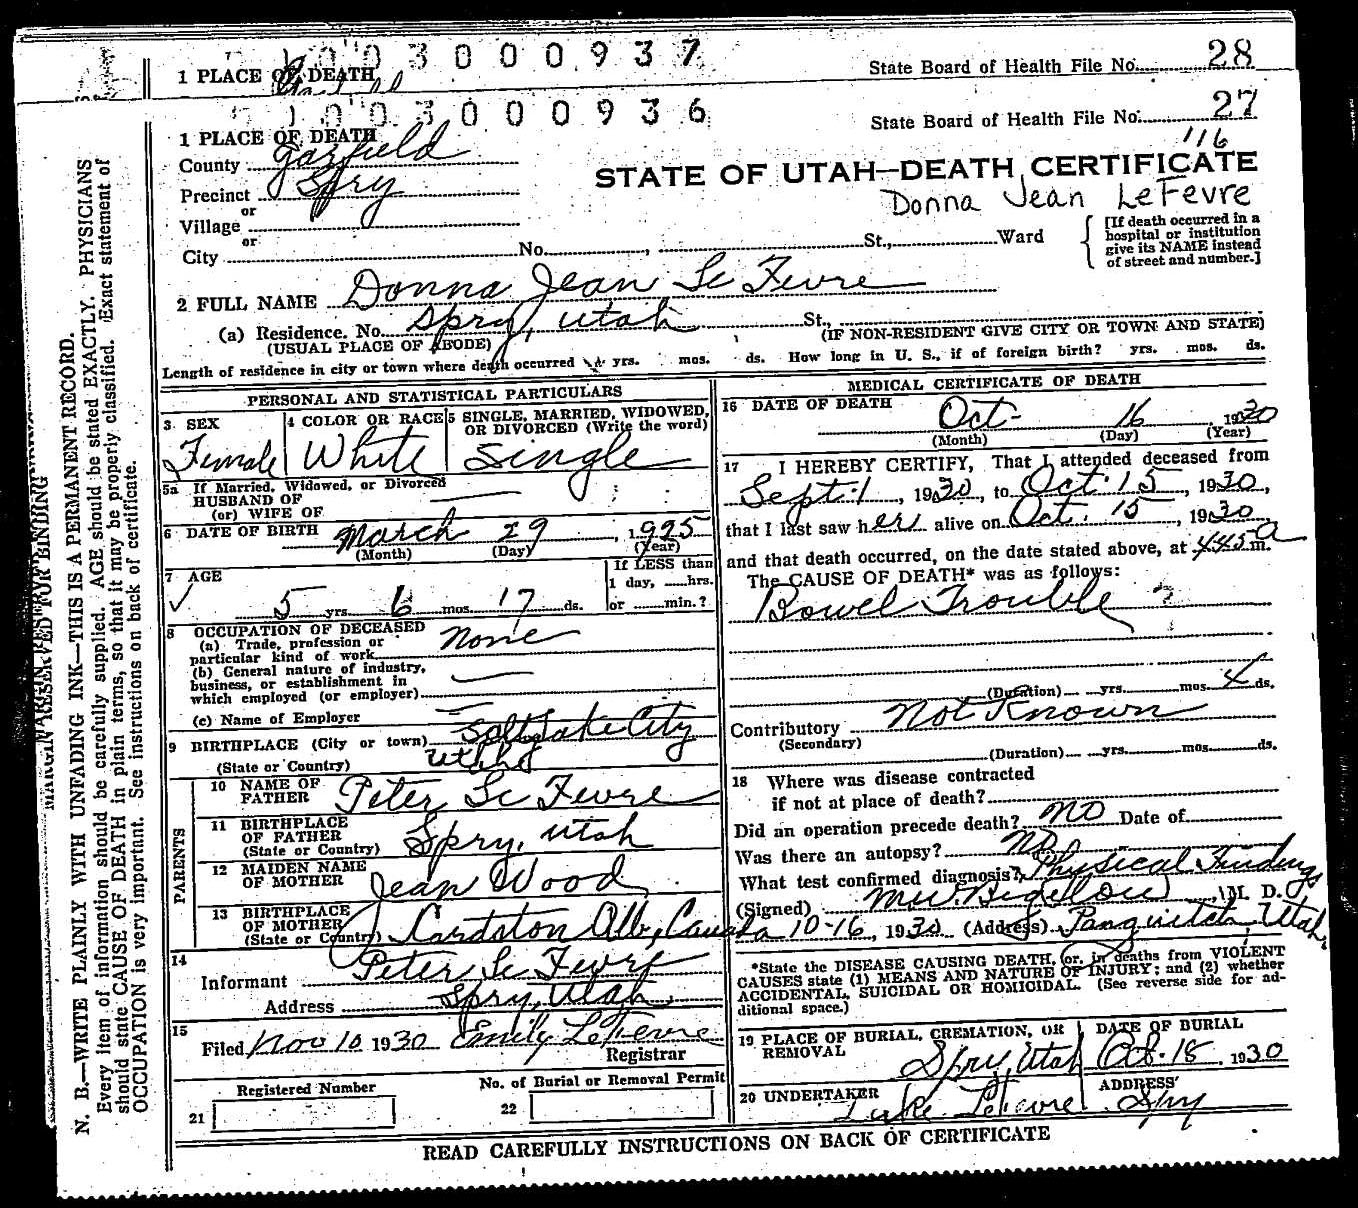 1003000937
1 PLACE OF DEATH
State Board of Health File No. 28
1003000936
State Board of Health File No. 27
116
1 PLACE OF DEATH
County Garfield
STATE OF UTAH—DEATH CERTIFICATE
Precinct Spry
Donna Jean LeFevre
or
Village
or
City No. , St., Ward
[If death occurred in a
hospital or institution
give its NAME instead
of street and number.]
2 FULL NAME Donna Jean Le Fevre
(a) Residence. No. Spry, Utah St.,
(USUAL PLACE OF ABODE) (IF NON-RESIDENT GIVE CITY OR TOWN AND STATE)
Length of residence in city or town where death occurred yrs. mos. ds. How long in U. S., if of foreign birth? yrs. mos. ds.
PERSONAL AND STATISTICAL PARTICULARS
3 SEX Female
4 COLOR OR RACE White
5 SINGLE, MARRIED, WIDOWED,
OR DIVORCED (Write the word) Single
5a If Married, Widowed, or Divorced
HUSBAND OF
(or) WIFE OF
6 DATE OF BIRTH March 29, 1925
(Month) (Day) (Year)
7 AGE 5 yrs. 6 mos. 17 ds.
If LESS than
1 day, hrs.
or min.?
8 OCCUPATION OF DECEASED
(a) Trade, profession or
particular kind of work None
(b) General nature of industry,
business, or establishment in
which employed (or employer)
(c) Name of Employer
9 BIRTHPLACE (City or town) Salt Lake City
(State or Country) Utah
PARENTS
10 NAME OF
FATHER Peter Le Fevre
11 BIRTHPLACE
OF FATHER
(State or Country) Spry, Utah
12 MAIDEN NAME
OF MOTHER Jean Wood
13 BIRTHPLACE
OF MOTHER
(State or Country) Cardston Alb, Canada
14 Informant Peter Le Fevre
Address Spry, Utah
15 Filed Nov 10 1930 Emily LeFevre
Registrar
Registered Number
21
No. of Burial or Removal Permit
22
MEDICAL CERTIFICATE OF DEATH
16 DATE OF DEATH Oct- 16 1930
(Month) (Day) (Year)
17 I HEREBY CERTIFY, That I attended deceased from
Sept. 1, 1930, to Oct. 15, 1930,
that I last saw her alive on Oct. 15, 1930
and that death occurred, on the date stated above, at 445 a m.
The CAUSE OF DEATH* was as follows:
Bowel Trouble ?
(Duration) yrs. mos. ds.
Contributory Not Known
(Secondary)
(Duration) yrs. mos. ds.
18 Where was disease contracted
if not at place of death?
Did an operation precede death? NO Date of
Was there an autopsy? No
What test confirmed diagnosis? Physical Findings
(Signed) M.W. Bigelow, M. D.
10-16, 1930 (Address) Panguitch, Utah
*State the DISEASE CAUSING DEATH, or, in deaths from VIOLENT
CAUSES state (1) MEANS AND NATURE OF INJURY; and (2) whether
ACCIDENTAL, SUICIDAL OR HOMICIDAL. (See reverse side for ad-
ditional space.)
19 PLACE OF BURIAL, CREMATION, OR
REMOVAL Spry, Utah
DATE OF BURIAL
Oct. 18, 1930
20 UNDERTAKER Luke LeFevre
ADDRESS Spry
READ CAREFULLY INSTRUCTIONS ON BACK OF CERTIFICATE
MARGIN RESERVED FOR BINDING
N. B.—WRITE PLAINLY WITH UNFADING INK—THIS IS A PERMANENT RECORD.
Every item of information should be carefully supplied. AGE should be stated EXACTLY. PHYSICIANS
should state CAUSE OF DEATH in plain terms, so that it may be properly classified. Exact statement of
OCCUPATION is very important. See instructions on back of certificate.